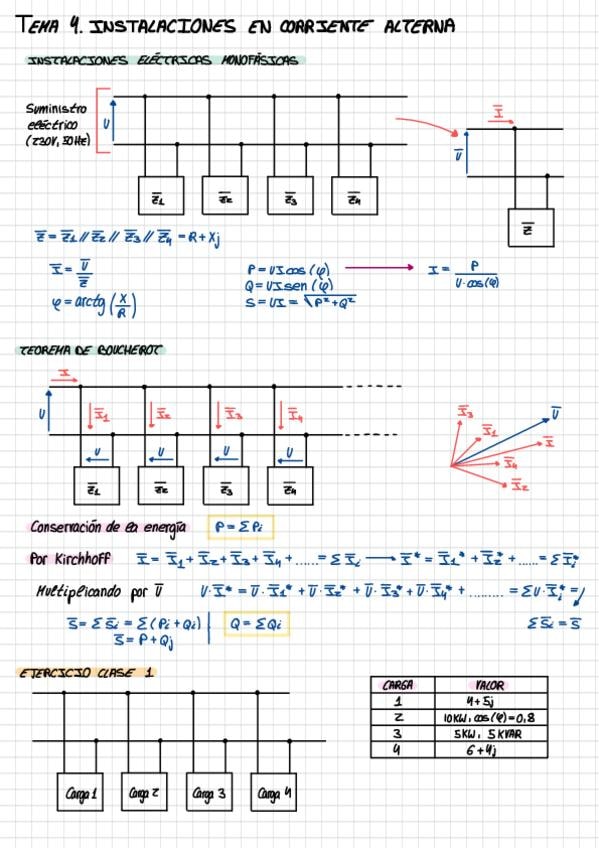 TEMA 4. INSTALACIONES EN CORRIENTE ALTERNA
INSTALACIONES ELÉCTRICAS MONOFÁSICAS
Suministro
eléctrico
(230V, 50Hz)
U
Z̅1
Z̅2
Z̅3
Z̅4
I̅
U̅
Z̅
Z̅ = Z̅1 // Z̅2 // Z̅3 // Z̅4 = R + Xj
I̅ = U̅ / Z̅
φ = arctg (X/R)
P = UI cos (φ)
Q = UI sen (φ)
S = UI = √(P² + Q²)
I = P / (U·cos(φ))
TEOREMA DE BOUCHEROT
I̅
U
I̅1
I̅2
I̅3
I̅4
U
U
U
U
Z̅1
Z̅2
Z̅3
Z̅4
I̅3
I̅1
U̅
I̅
I̅4
I̅2
Conservación de la energía P = ΣPi
Por Kirchhoff I̅ = I̅1 + I̅2 + I̅3 + I̅4 + ...... = Σ I̅i → I̅* = I̅1* + I̅2* + ...... = Σ I̅i*
Multiplicando por U̅ U·I̅* = U̅·I̅1* + U̅·I̅2* + U̅·I̅3* + U̅·I̅4* + ......... = ΣU·I̅i* =
S̅ = Σ S̅i = Σ(Pi + Qi) Q = ΣQi Σ S̅i = S̅
S̅ = P + Qj
EJERCICIO CLASE 1
Carga 1
Carga 2
Carga 3
Carga 4
CARGA VALOR
1 4+5j
2 10KW, cos(φ)=0,8
3 5KW, 5KVAR
4 6+4j